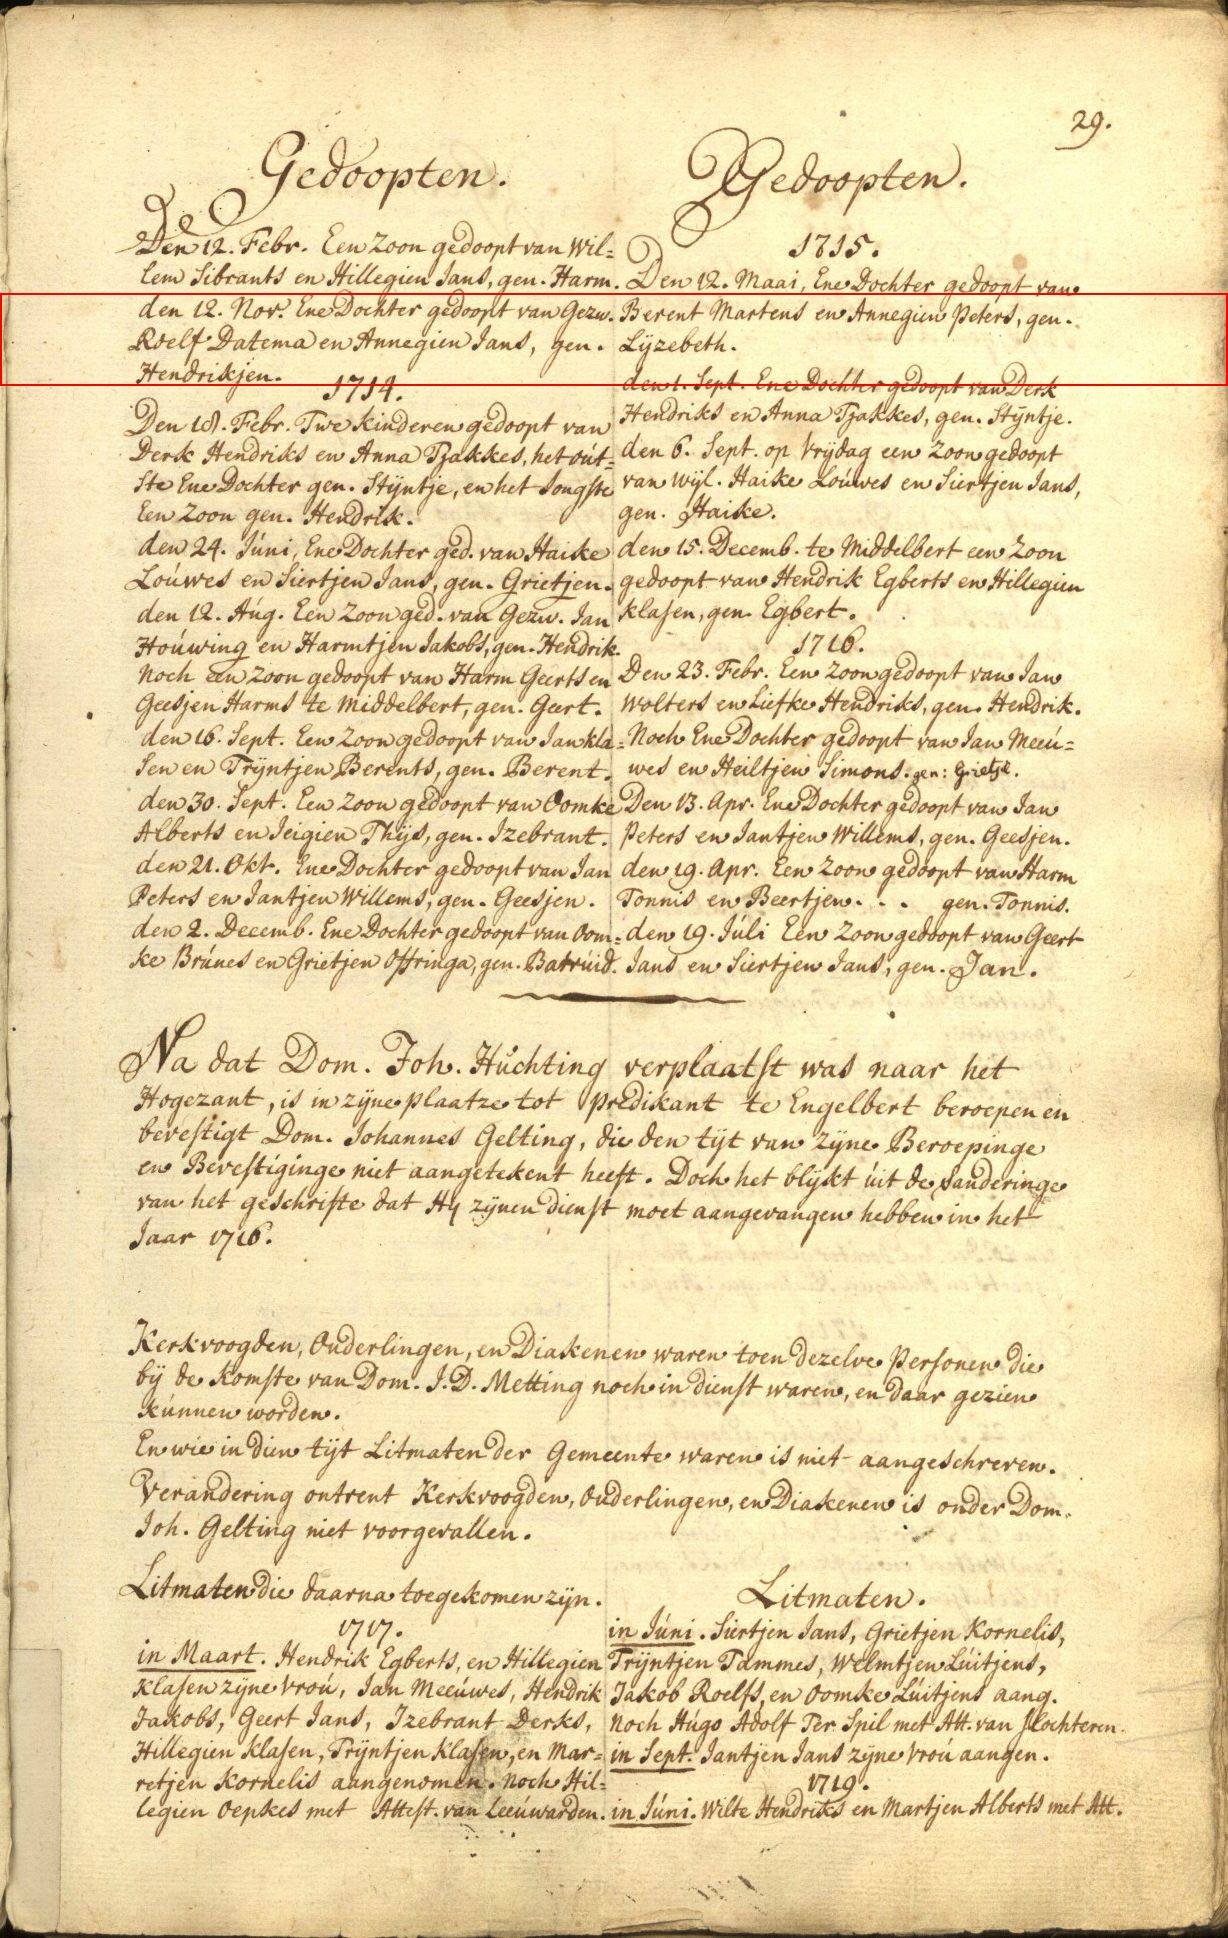 29.
Gedoopten.
Den 12. Febr. Een Zoon gedoopt van Wil=
lem Sibrants en Hillegien Jans, gen. Harm.
den 12. Nov. Ene Dochter gedoopt van Gezw.
Roelf Datema en Annegien Jans, gen.
Hendrikjen.
1714.
Den 18. Febr. Twe kinderen gedoopt van
Derk Hendriks en Anna Tjakkes, het oút=
ste Ene Dochter gen. Stÿntje, en het Jongste
Een Zoon gen. Hendrik.
den 24. Júni, Ene Dochter ged. van Haike
Loúwes en Siertjen Jans, gen. Grietjen.
den 12. Aúg. Een Zoon ged. van Gezw. Jan
Hoúwing en Harmtjen Jakobs, gen. Hendrik.
Noch een Zoon gedoopt van Harm Geerts en
Geesjen Harms te Middelbert, gen. Geert.
den 16. Sept. Een Zoon gedoopt van Jan Kla=
sen en Trÿntjen Berents, gen. Berent.
den 30. Sept. Een Zoon gedoopt van Oomke
Alberts en Jeigien Thÿs, gen. Izebrant.
den 21. Okt. Ene Dochter gedoopt van Jan
Peters en Jantjen Willems, gen. Geesjen.
den 2. Decemb. Ene Dochter gedoopt van Oom=
ke Brúnes en Grietjen Offringa, gen. Batruid.
Gedoopten.
1715.
Den 12. Maai, Ene Dochter gedoopt van
Berent Martens en Annegien Peters, gen.
Lÿzebeth.
den 1. Sept. Ene Dochter gedoopt van Derk
Hendriks en Anna Tjakkes, gen. Stÿntje.
den 6. Sept. op Vrÿdag een Zoon gedoopt
van wÿl. Haike Loúwes en Siertjen Jans,
gen. Haike.
den 15. Decemb. te Middelbert een Zoon
gedoopt van Hendrik Egberts en Hillegien
Klasen, gen. Egbert.
1716.
Den 23. Febr. Een Zoon gedoopt van Jan
Wolters en Liefke Hendriks, gen. Hendrik.
Noch Ene Dochter gedoopt van Jan Meeú=
wes en Heiltjen Simons. gen: Grietje.
Den 13. Apr. Ene Dochter gedoopt van Jan
Peters en Jantjen Willems, gen. Geesjen.
den 19. Apr. Een Zoon gedoopt van Harm
Tonnis en Beertjen . . . gen. Tonnis.
den 19. Júli Een Zoon gedoopt van Geert
Jans en Siertjen Jans, gen. Jan.
Na dat Dom. Joh. Húchting verplaatst was naar het
Hogezant, is in zÿne plaatze tot Predikant te Engelbert beroepen en
bevestigt Dom. Johannes Gelting, die den tÿt van zÿne Beroepinge
en Bevestiginge niet aangetekent heeft. Doch het blÿkt úit de randeringe
van het geschrifte dat Hÿ zÿnen dienst moet aangevangen hebben in het
Jaar 1716.
Kerkvoogden, Ouderlingen, en Diakenen waren toen dezelve Personen die
bÿ de Komste van Dom. J. D. Metting noch in dienst waren, en daar gezien
kúnnen worden.
En wie in dien tÿt Litmaten der Gemeente waren is niet aangeschreven.
Verandering ontrent Kerkvoogden, Ouderlingen, en Diakenen is onder Dom.
Joh. Gelting niet voorgevallen.
Litmaten die daarna toegekomen zÿn.
1717.
in Maart. Hendrik Egberts, en Hillegien
Klasen zÿne Vroú, Jan Meeúwes, Hendrik
Jakobs, Geert Jans, Izebrant Derks,
Hillegien Klasen, Trÿntjen Klasen, en Mar=
retjen Kornelis aangenomen. Noch Hil=
legien Oepkes met Attest. van Leeúwarden.
Litmaten.
in Júni. Siertjen Jans, Grietjen Kornelis,
Trÿntjen Tammes, Welmtjen Lúitjens,
Jakob Roelfs, en Oomke Lúitjens aang.
Noch Húgo Adolf Ter Spil met Att. van Slochteren.
in Sept. Jantjen Jans zÿne Vroú aangen.
1719.
in Júni. Wilte Hendriks en Martjen Alberts met Att.